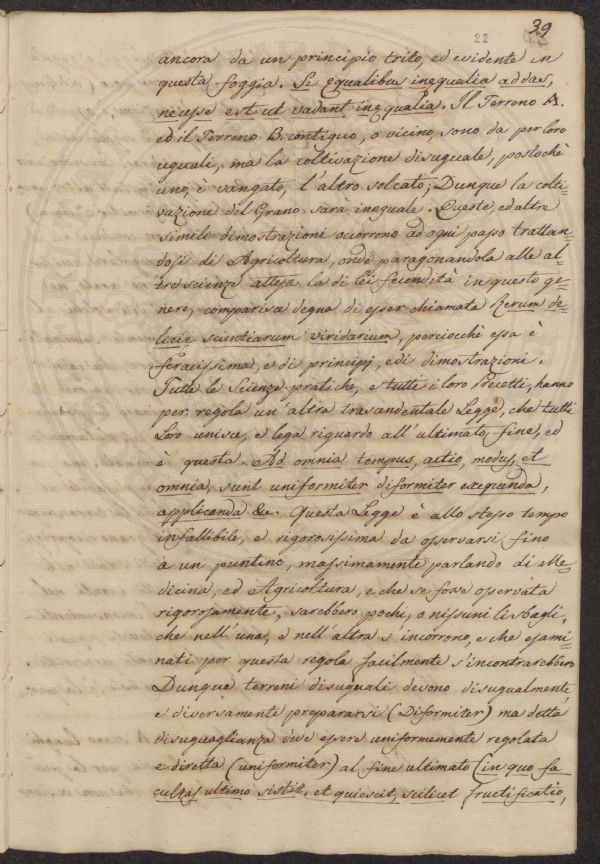 22 39
ancora da un principio trito, ed evidente in
questa foggia. Si equalibus inequalia addas,
necesse est ut vadant inequalia. Il Terreno A.
ed il Terreno B. contiguo, o vicino, sono da per loro
uguali, ma la coltivazione disuguale, postochè
uno, è vangato, l'altro solcato; Dunque la colti=
vazione del Grano sarà ineguale. Queste, ed altre
simili dimostrazioni occorrono ad ogni passo trattan=
dosi di Agricoltura, onde paragonandola alle al=
tre scienze attesa la di lei fecondità in questo ge=
nere, comparisce degna di esser chiamata Rerum de=
licie, scientiarum viridarium, perciocchè essa è
feracissima, e di principj, e di dimostrazioni.
Tutte le Scienze pratiche, e tutti i loro Precetti, hanno
per regola un' altra trascendentale Legge, che tutti
Loro unisce, e lega riguardo all' ultimato fine, ed
è questa. Ad omnia tempus, actio, modus, et
omnia, sunt uniformiter difformiter exequenda,
applicenda &c. Questa Legge è allo stesso tempo
infallibile, e rigorosissima da osservarsi fino
a un puntino, massimamente parlando di Me=
dicina, ed Agricoltura, e che se fosse osservata
rigorosamente, sarebbero pochi, o nissuni li sbagli,
che nell' una, e nell' altra s' incorrono, e che esami=
nati per questa regola facilmente s'incontrarebbero
Dunque terreni disuguali devono disugualmente
e diversamente prepararsi (Diformiter) ma detta
disuguaglianza deve essere uniformemente regolata
e diretta (uniformiter) al fine ultimato (in quo fa=
cultas ultimo sistit, et quiescit, scilicet Fructificatio,